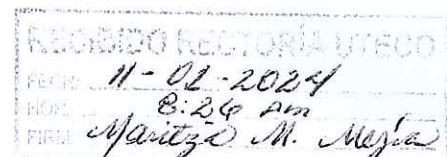 RECIBIDO RECTORÍA UTECO
FECHA 11-02-2024
HORA 8:26 Am
FIRMA Maritza M. Mejía